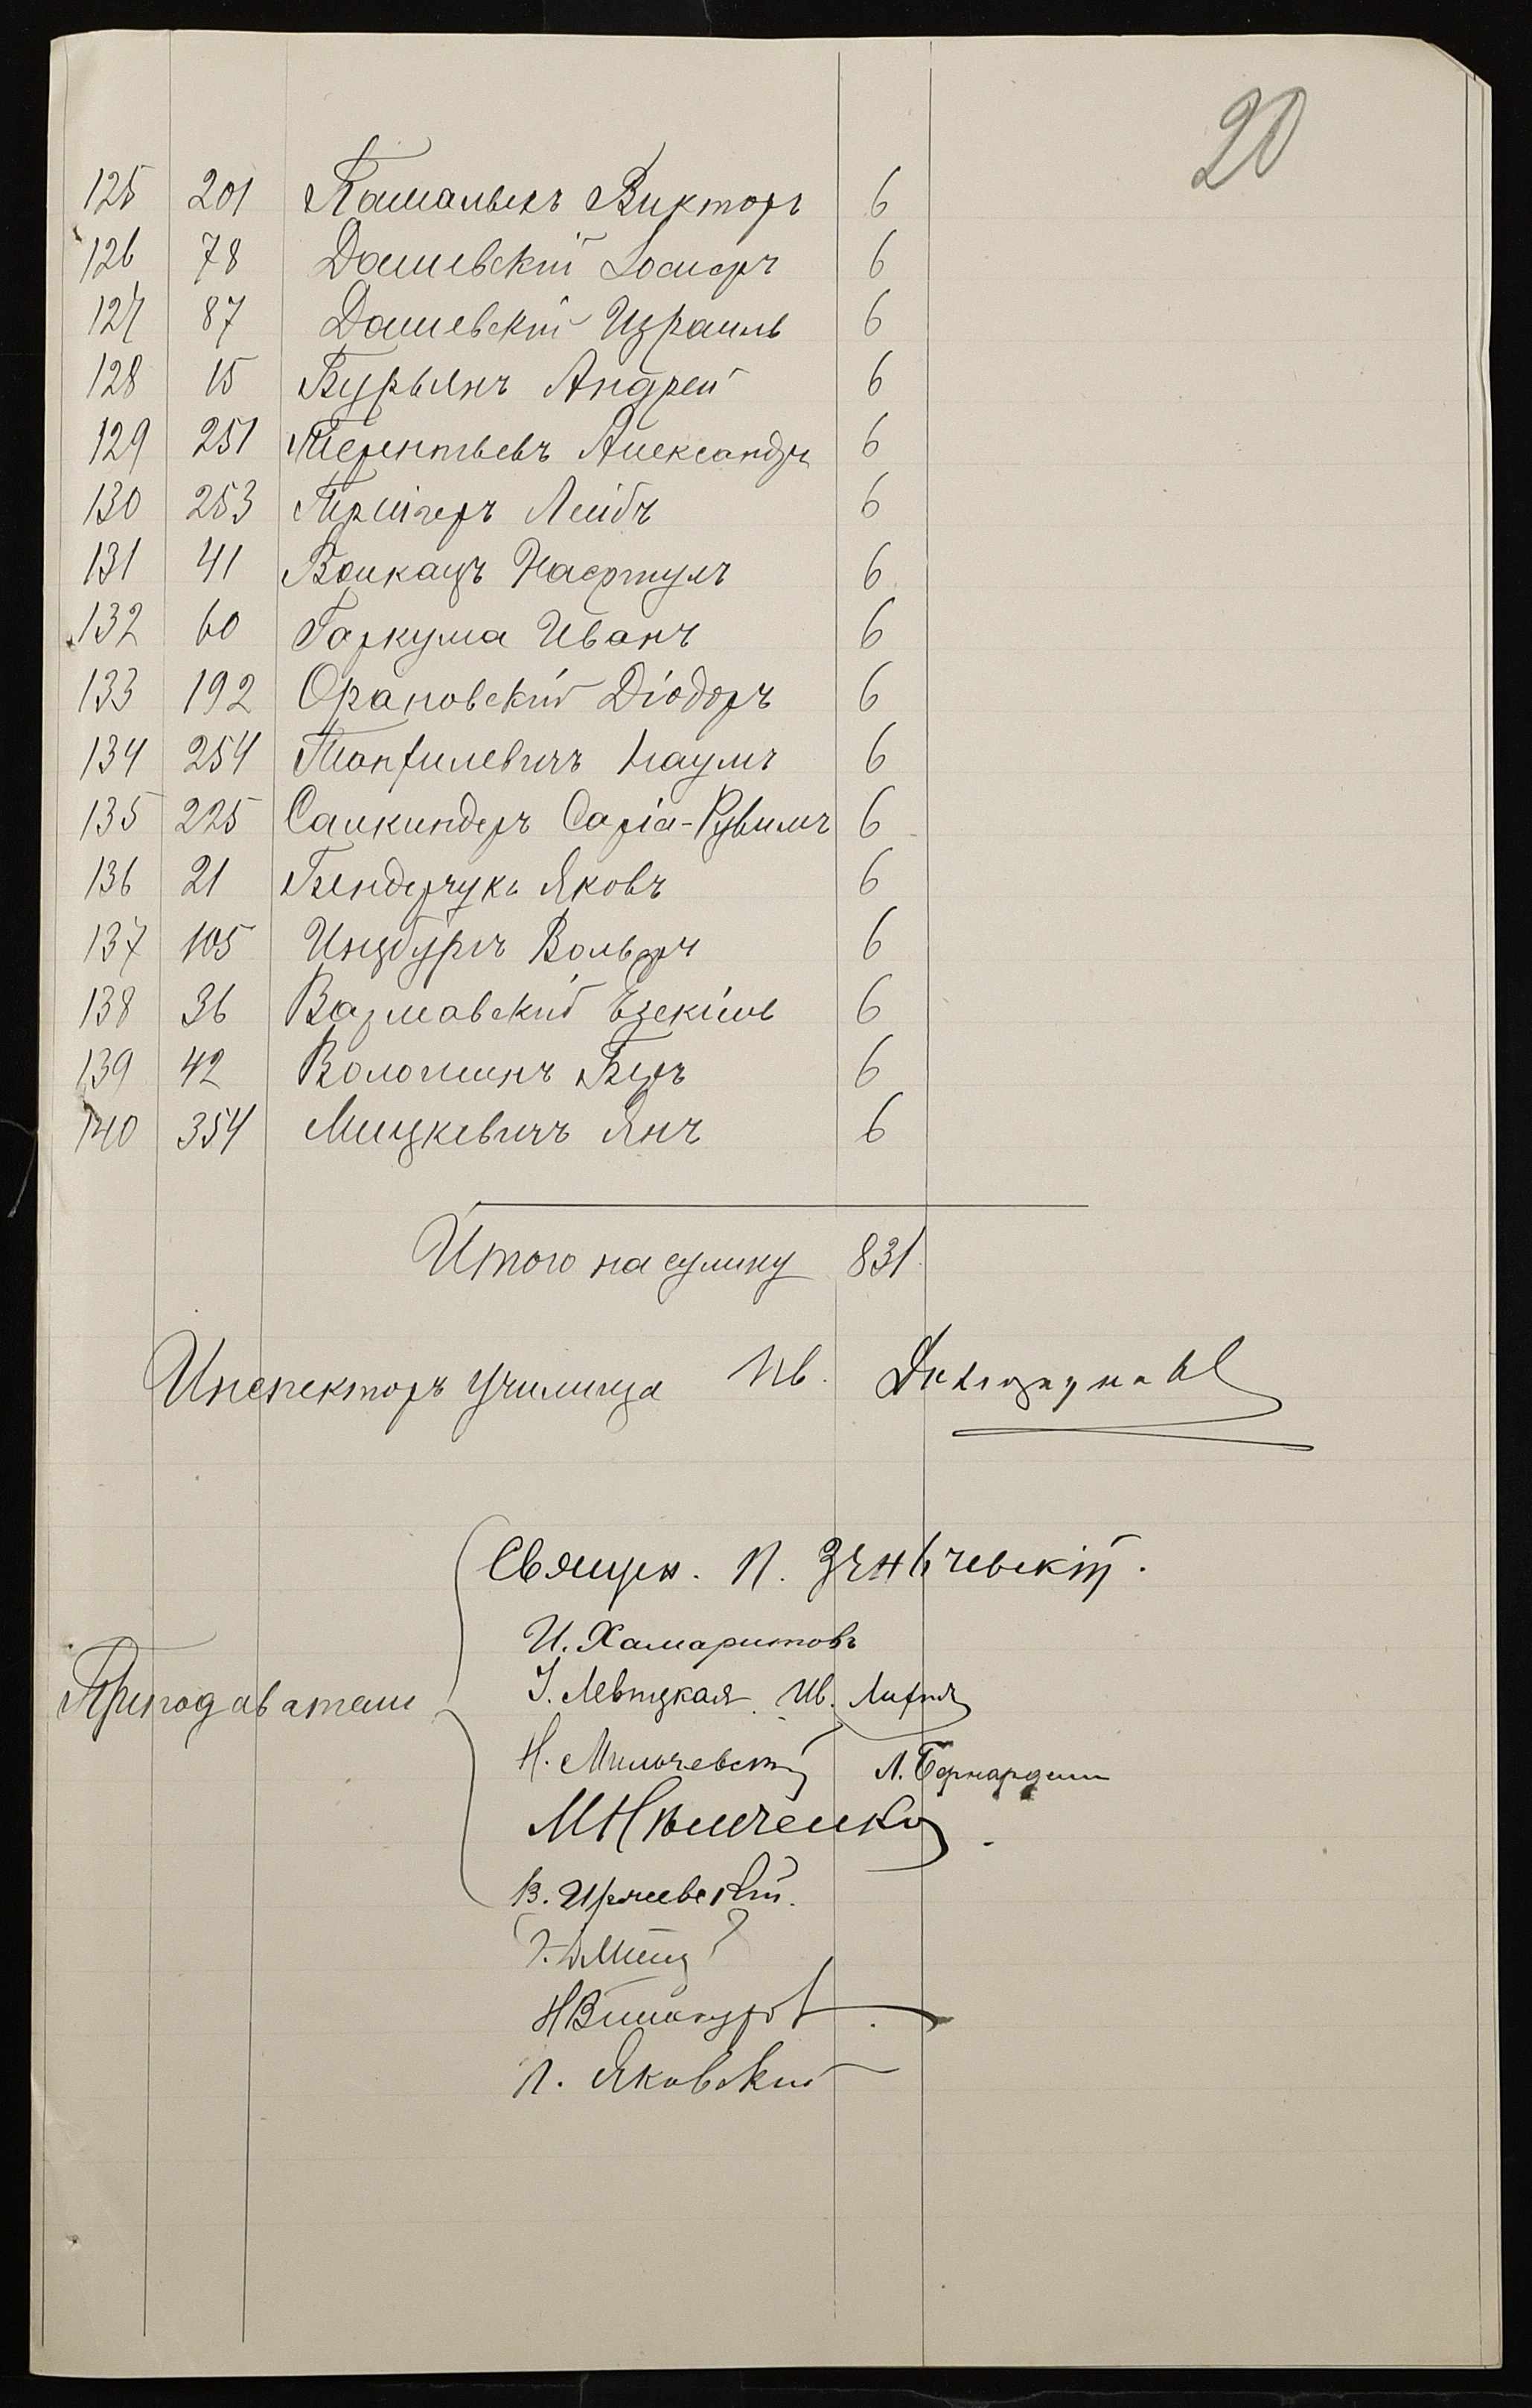 20
125 201 Пашалыкъ Викторъ 6
126 78 Дашевскій Іосифъ 6
127 87 Дашевскій Израиль 6
128 15 Бурьянъ Андрей 6
129 251 Терентьевъ Александръ 6
130 253 Трейгеръ Лейбъ 6
131 41 Волкацъ Нафтулъ 6
132 60 Гаркуша Иванъ 6
133 192 Орановскій Діодоръ 6
134 254 Томфилевичъ Наумъ 6
135 225 Салкиндеръ Сапіа-Рувимъ 6
136 21 Бендерчукъ Яковъ 6
137 105 Инцбургъ Вольфъ 6
138 36 Варшавскій Езекіиль 6
139 42 Воложинъ Беръ 6
140 354 Мицкевичъ Янъ 6
Итого на сумму 831
Инспекторъ училища Ив.
Священ. П. Зеньчевскій.
И. Хамаритовъ
Преподаватели
І. Левицкая. Ив.
Н. Мильчевскій Л. Бернардъ
М Никитченко
В. Иржевскій.
Н Винокуровъ
Л. Яковскій